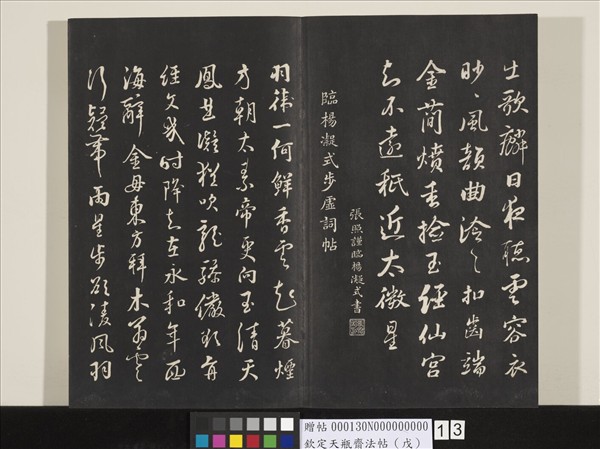 出歌麟入夜聽雲容衣
眇眇風韻曲泠泠扣齒端
金簡焚香檢玉經仙宮
知不遠秖近太微星
張照謹臨楊凝式書
臨楊凝式步虛詞帖
羽衛一何鮮香雲起暮煙
方朝太素帝更向玉清天
鳳曲凝猶吹龍驂儼欲前
經文幾時降知在永和年西
海辭金母東方拜木公雲
行疑帶雨星步欲凌風羽
贈帖 000130N000000000
欽定天瓶齋法帖（戊）
13